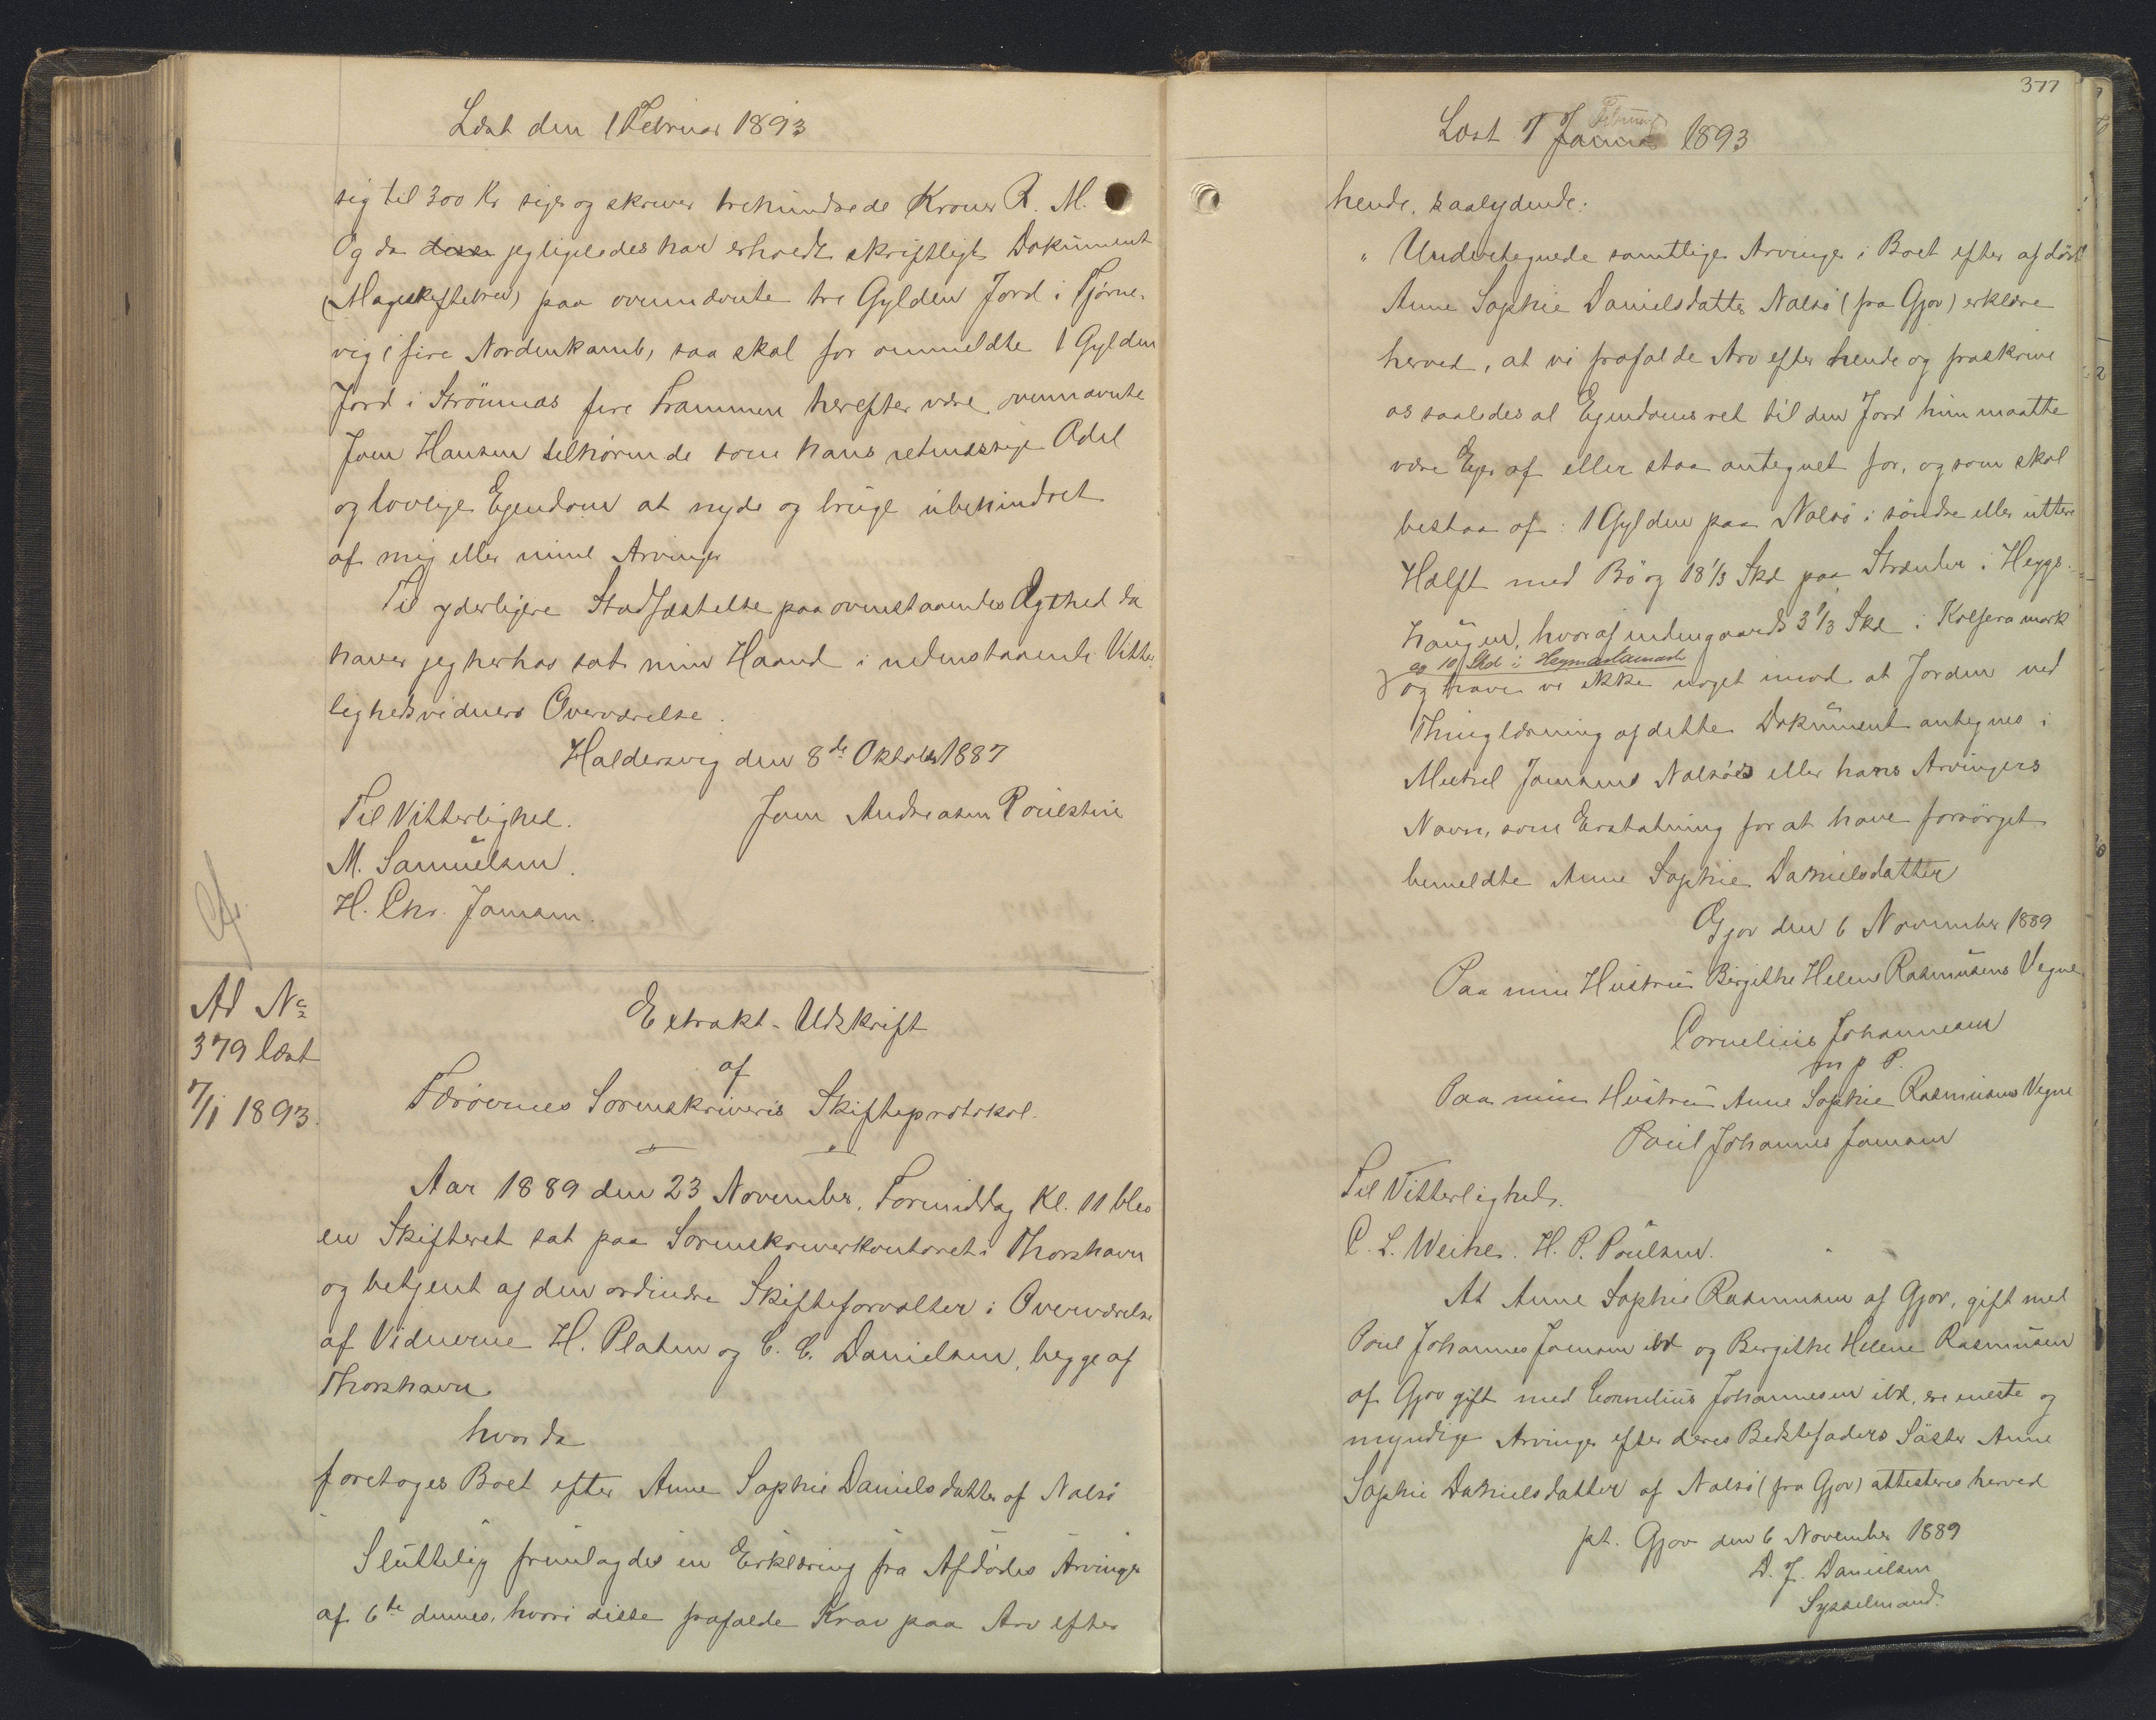 Læst den 1 Februar 1893
sig til 300 Kr siger og skriver trehundrede Kroner R. M.
Og da disse jeg ligeledes har erholdt skriftligt Dokument
(Mageskiftebrev) paa ovennævnte tre Gylden Jord i Tjørne-
vig i fire Nordenkamb, saa skal for ommeldte 1 Gylden
Jord i Strömnæs fire Frammen herefter være ovennævnte
Joen Hansen tilhørende som hans retmæssige Odel
og lovlige Ejendom at nyde og bruge ubehindret
af mig eller mine Arvinger
Til yderligere Stadfæstelse paa ovenstaaendes Ægthed da
haver jeg herhos sat min Haand i nedenstaaende Vitter
lighedsvidners Overværelse.
Haldersvig den 8de Oktober 1887
Til Vitterlighed.
Joen Andreasen Poulstin
M. Samuelsen.
H. Chr. Joensen.
Ad No
379 læst
7/1 1893.
Extrakt-Udskrift
af
Færöernes Sorenskriveris Skifteprotokol.
Aar 1889 den 23 November, Formiddag Kl. 11 blev
en Skifteret sat paa Sorenskriverkontoret i Thorshavn
og betjent af den ordinære Skifteforvalter i Overværelse
af Vidnerne H. Platen og C. C. Danielsen, begge af
Thorshavn
hvorda
foretoges Boet efter Anne Sophie Danielsdatter af Nalsö
Sluttelig fremlagdes en Erklæring fra Afdødes Arvinger
af 6te dennes, hvori disse frafalde Krav paa Arv efter
377
Læst 7 Januar Februar 1893
hende, saalydende:
"Undertegnede samtlige Arvinger i Boet efter afdöde
Anne Sophie Danielsdatter Nalsö (fra Gjov) erklære
herved, at vi frafalde Arv efter hende og fraskrive
os saaledes al Ejendomsret til den Jord hun maatte
være Ejer af eller staa antegnet for, og som skal
bestaa af: 1 Gylden paa Nalsö i söndre eller uttere
Halft med Bö og 18 1/3 Skd paa Strænder i Heggs-
haugen, hvoraf indengaards 3 1/3 Skd i Kolfera mark
og 10 Skd i Heymastamark
og have vi ikke noget imod at Jorden ved
Thinglæsning af dette Dokument antegnes i
Michel Joensens Nalsöes eller hans Arvingers
Navn, som Erstatning for at have forsörget
bemeldte Anne Sophie Danielsdatter
Gjov den 6 November 1889
Paa min Hustrues Birgithe Helene Rasmusens Vegne
Cornelius Johannesen
m p P.
Paa min Hustrues Anne Sophie Rasmusens Vegne
Poul Johannes Joensen
Til Vitterlighed.
C. L. Weihe. H. P. Poulsen.
At Anne Sophie Rasmusen af Gjov, gift med
Poul Johannes Joensen ibd og Bergithe Helene Rasmusen
af Gjov gift med Cornelius Johannesen ibd, ere eneste og
myndige Arvinger efter deres Bedstefaders Söster Anne
Sophie Danielsdatter af Nalsö (fra Gjov) attesteres herved
pt. Gjov den 6 November 1889
D. J. Danielsen
Sysselmand.